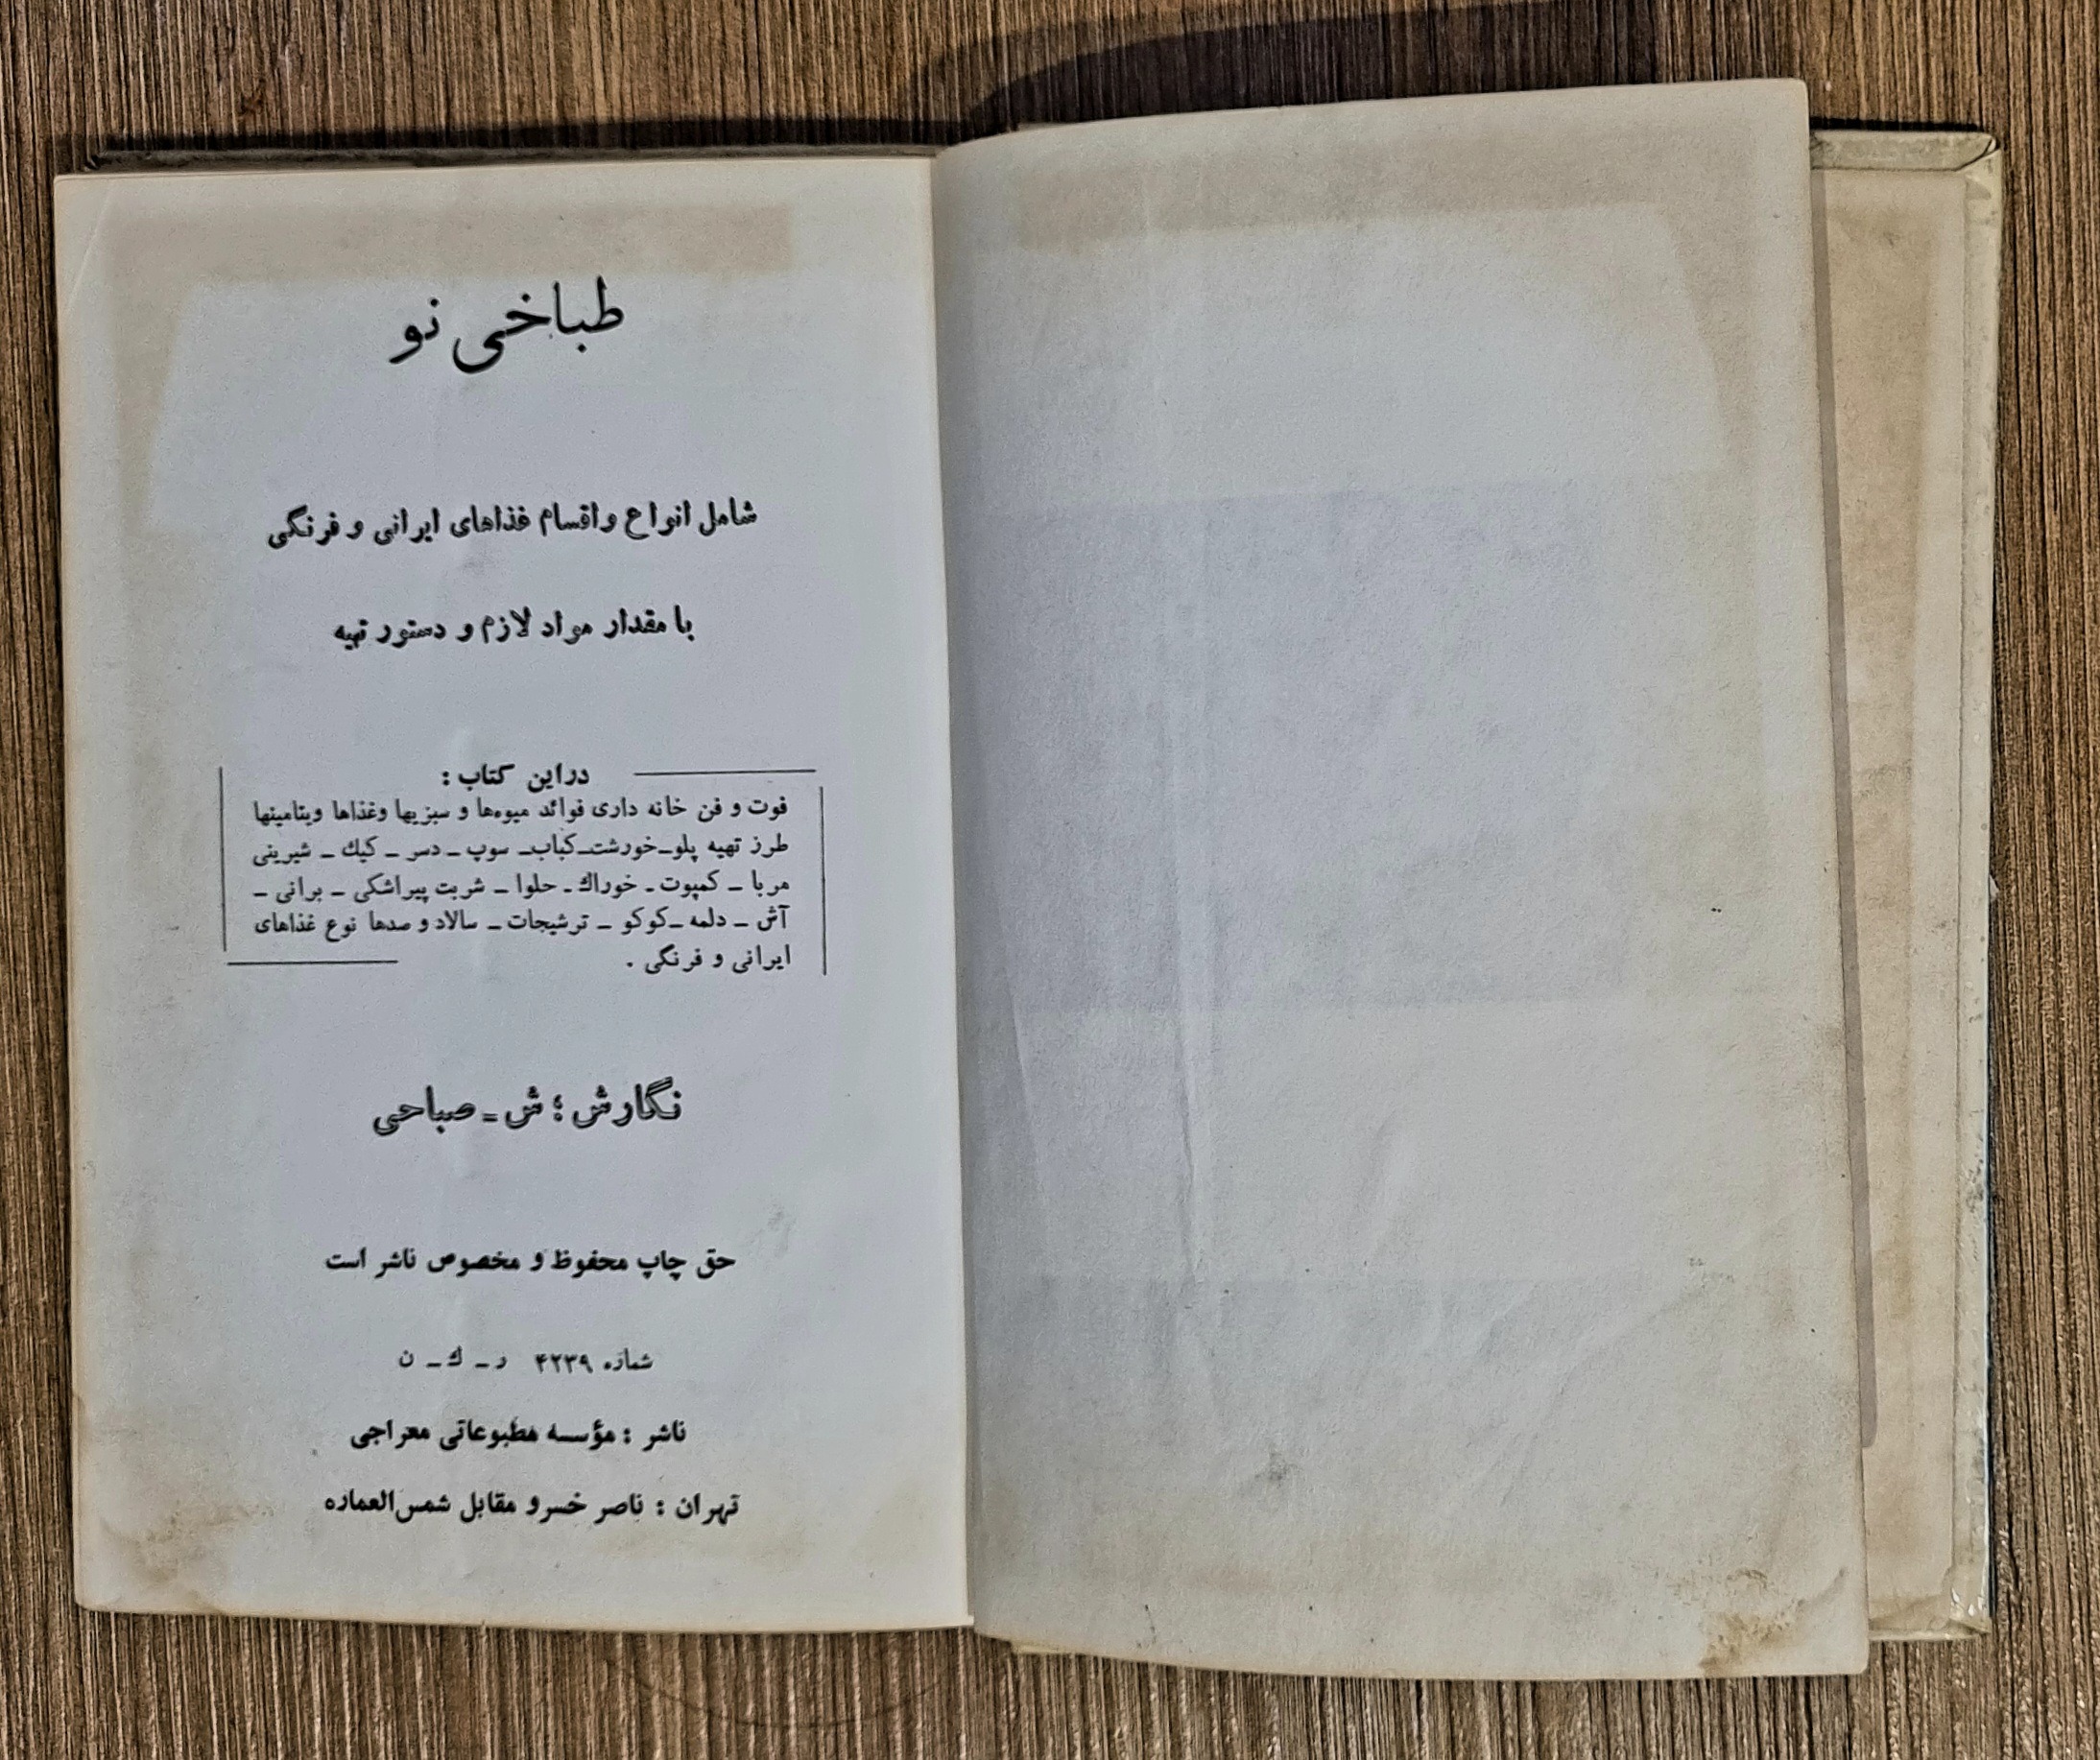 طباخی نو
شامل انواع واقسام غذاهای ایرانی و فرنگی
با مقدار مواد لازم و دستور تهیه
دراین کتاب :
فوت و فن خانه داری فوائد میوه‌ها و سبزیها وغذاها ویتامینها
طرز تهیه پلو ـ خورشت ـ کباب ـ سوپ ـ دسر ـ کیك ـ شیرینی
مربا ـ کمپوت ـ خوراك ـ حلوا ـ شربت پیراشکی ـ برانی ـ
آش ـ دلمه ـ کوکو ـ ترشیجات ـ سالاد و صدها نوع غذاهای
ایرانی و فرنگی .
نگارش ؛ ش ـ صباحی
حق چاپ محفوظ و مخصوص ناشر است
شماره ۴۲۳۹ ر ـ ك ـ ن
ناشر : مؤسسه مطبوعاتی معراجی
تهران : ناصر خسرو مقابل شمس‌العماره